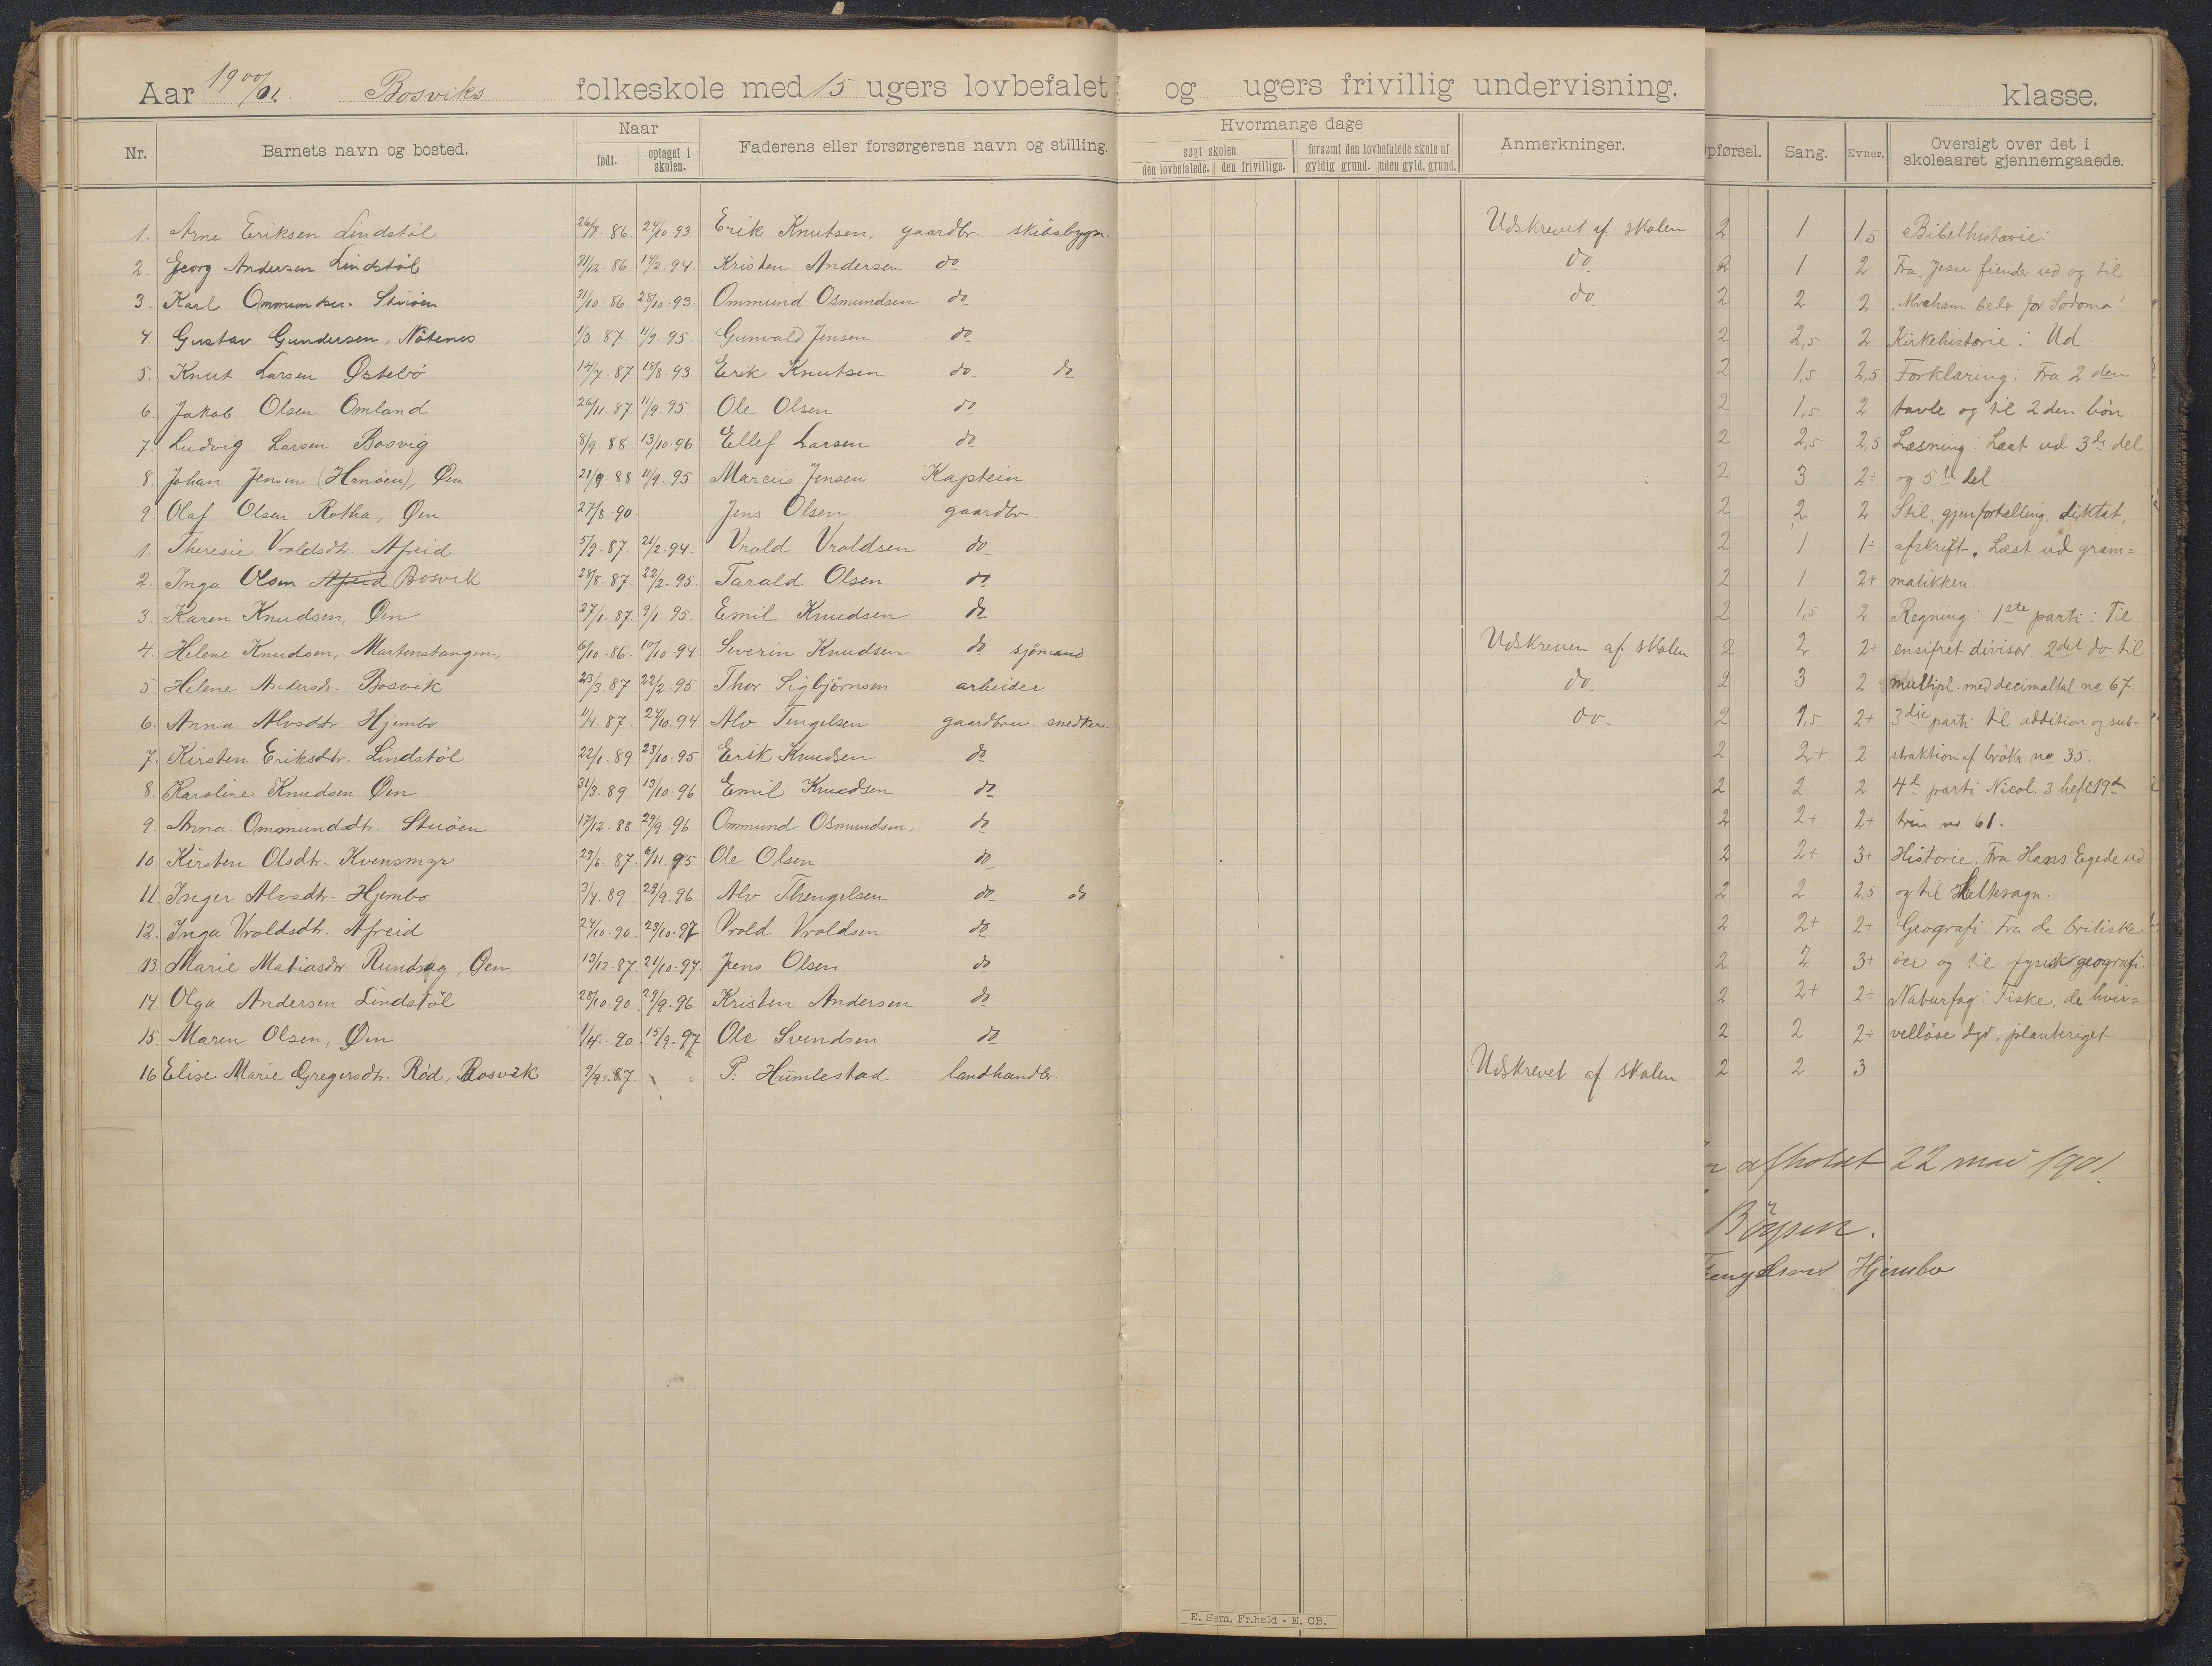 Aar 1900/01. Bosviks folkeskole med 15 ugers lovbefalet og ugers frivillig undervisning. klasse.
Nr. Barnets navn og bosted. Naar født. optaget i skolen. Faderens eller forsørgerens navn og stilling. Hvormange dage søgt skolen den lovbefalede. den frivillige. forsømt den lovbefalede skole af gyldig grund. uden gyld. grund. Anmerkninger. Opførsel. Sang. Evner. Oversigt over det i skoleaaret gjennemgaaede.
1. Arne Eriksen Lindstøl 26/7. 86. 24/10 93 Erik Knutsen, gaardbr. skibsbygn. Udskrevet af skolen 2 1 1,5 Bibelhistorie:
2. Georg Andersen Lindstøl 31/12. 86 14/2. 94. Kristen Andersen do do 2 1 2 Fra Jesu fiender ud og til
3. Karl Ommundsen Stuøen 31/10 86 28/10. 93. Ommund Osmundsen do do 2 2 2 Abraham beder for Sodoma!
4. Gustav Gundersen, Nötenes 1/5 87. 11/9. 95 Gunvald Jensen do 2 2,5 2 Kirkehistorie: Ud.
5. Knut Larsen Østebö 14/7. 87. 18/8. 93. Erik Knutsen do do 2 1,5 2,5 Forklaring: Fra 2 den
6. Jakob Olsen Omland 26/11. 87. 11/9. 95 Ole Olsen do 2 1,5 2 tavle og til 2 den bön.
7. Ludvig Larsen Bosvig 8/9. 88. 13/10. 96 Ellef Larsen do 2 2,5 2,5 Læsning: Læst ud 3de del
8. Johan Jensen (Hanöen), Øen 21/9. 88 11/9. 95 Marcus Jensen Kaptein 2 3 2÷ og 5te del.
9 Olaf Olsen Rotha, Øen 27/8. 90. Jens Olsen gaardbr. 2 2 2 Stil, gjenfortælling, diktat,
1. Theresie Vroldsdtr. Afreid 5/9. 87. 21/2. 94. Vrold Vroldsen do 2 1 1÷ afskrift. Læst ud gram=
2. Inga Olsen Afreid Bosvik 28/8. 87. 22/2. 95 Tarald Olsen do 2 1 2+ matikken.
3. Karen Knudsen, Øen 27/1. 87. 9/1. 95. Emil Knudsen do 2 1,5 2 Regning: 1ste parti: Til
4. Helene Knudsen, Martenstangen, 6/10. 86. 17/10. 94 Severin Knudsen do sjömand Udskreven af skolen 2 2 2÷ ensifret divisor. 2det do til
5. Helene Andersdr. Bosvik 23/3. 87 22/2. 95 Thor Sigbjørnsen arbeider do. 2 3 2 multipl. med decimaltal no 67.
6. Anna Alvsdtr. Hjembo 11/4. 87. 24/10. 94 Alv Tengelsen gaardbru. snedker. do. 2 1,5 2+ 3die parti til addition og sub-
7. Kirsten Eriksdtr. Lindstøl 22/1. 89 23/10. 95 Erik Knudsen do 2 2+ 2 straktion af bröker no 35.
8. Karoline Knudsen Øen 31/3. 89 13/10. 96 Emil Knudsen do 2 2 2 4de parti Nicol. 3 hefte 19de
9. Anna Ommundsdtr. Stuöen 17/12. 88 29/9. 96 Ommund Osmundsen, do 2 2+ 2+ trin no. 61.
10. Kirsten Olsdtr. Kvensmyr 29/6. 87. 6/11. 95 Ole Olsen do 2 2+ 3+ Historie. Fra Hans Egede ud
11. Inger Alvsdtr. Hjembo 3/4. 89 29/9. 96 Alv Thengelsen do do 2 2 2,5 og til Heltesagn.
12. Inga Vroldsdtr. Afreid 24/10. 90. 23/10. 97 Vrold Vroldsen do 2 2+ 2+ Geografi: Fra de britiske
13. Marie Matiasdr. Rundsag, Øen 13/12. 87. 21/10. 97. Jens Olsen do 2 2 3+ öer og til fysisk geografi.
14. Olga Andersen Lindstøl 28/10. 90. 29/9. 96 Kristen Andersen do 2 2+ 2÷ Naturfag: Fiske, de hvir=
15. Maren Olsen, Øen 1/4. 90. 15/9. 97 Ole Svendsen do 2 2 2÷ vellöse dyr, planteriget.
16 Elise Marie Gregersdtr. Rød, Bosvik 9/9. 87. P. Humlestad landhandlr. Udskrevet af skolen 2 2 3
afholdt 22 mai 1901.
Hjembo
E. Sem, Fr.hald - E. CB.